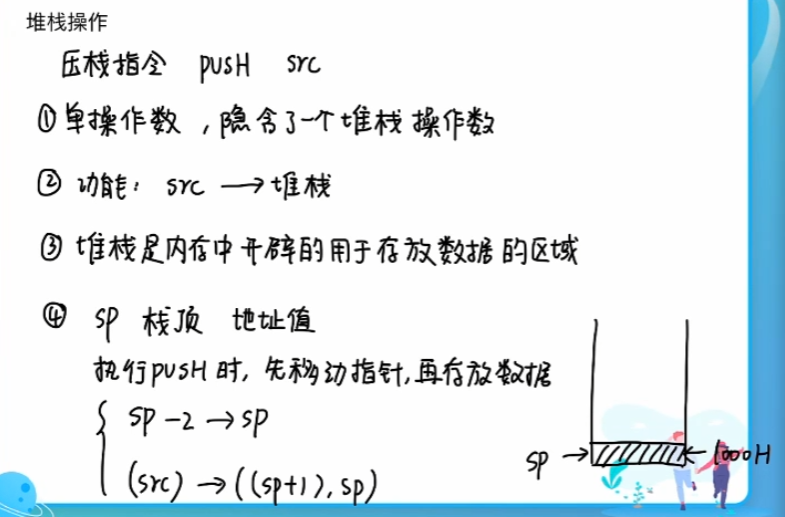 堆栈操作
压栈指令 PUSH src
①单操作数，隐含了一个堆栈操作数
② 功能： src → 堆栈
③ 堆栈是内存中开辟的用于存放数据的区域
④ SP 栈顶 地址值
执行PUSH时, 先移动指针,再存放数据
{ SP -2 → SP
(src) → ((SP+1), SP)
SP → ← 1000H